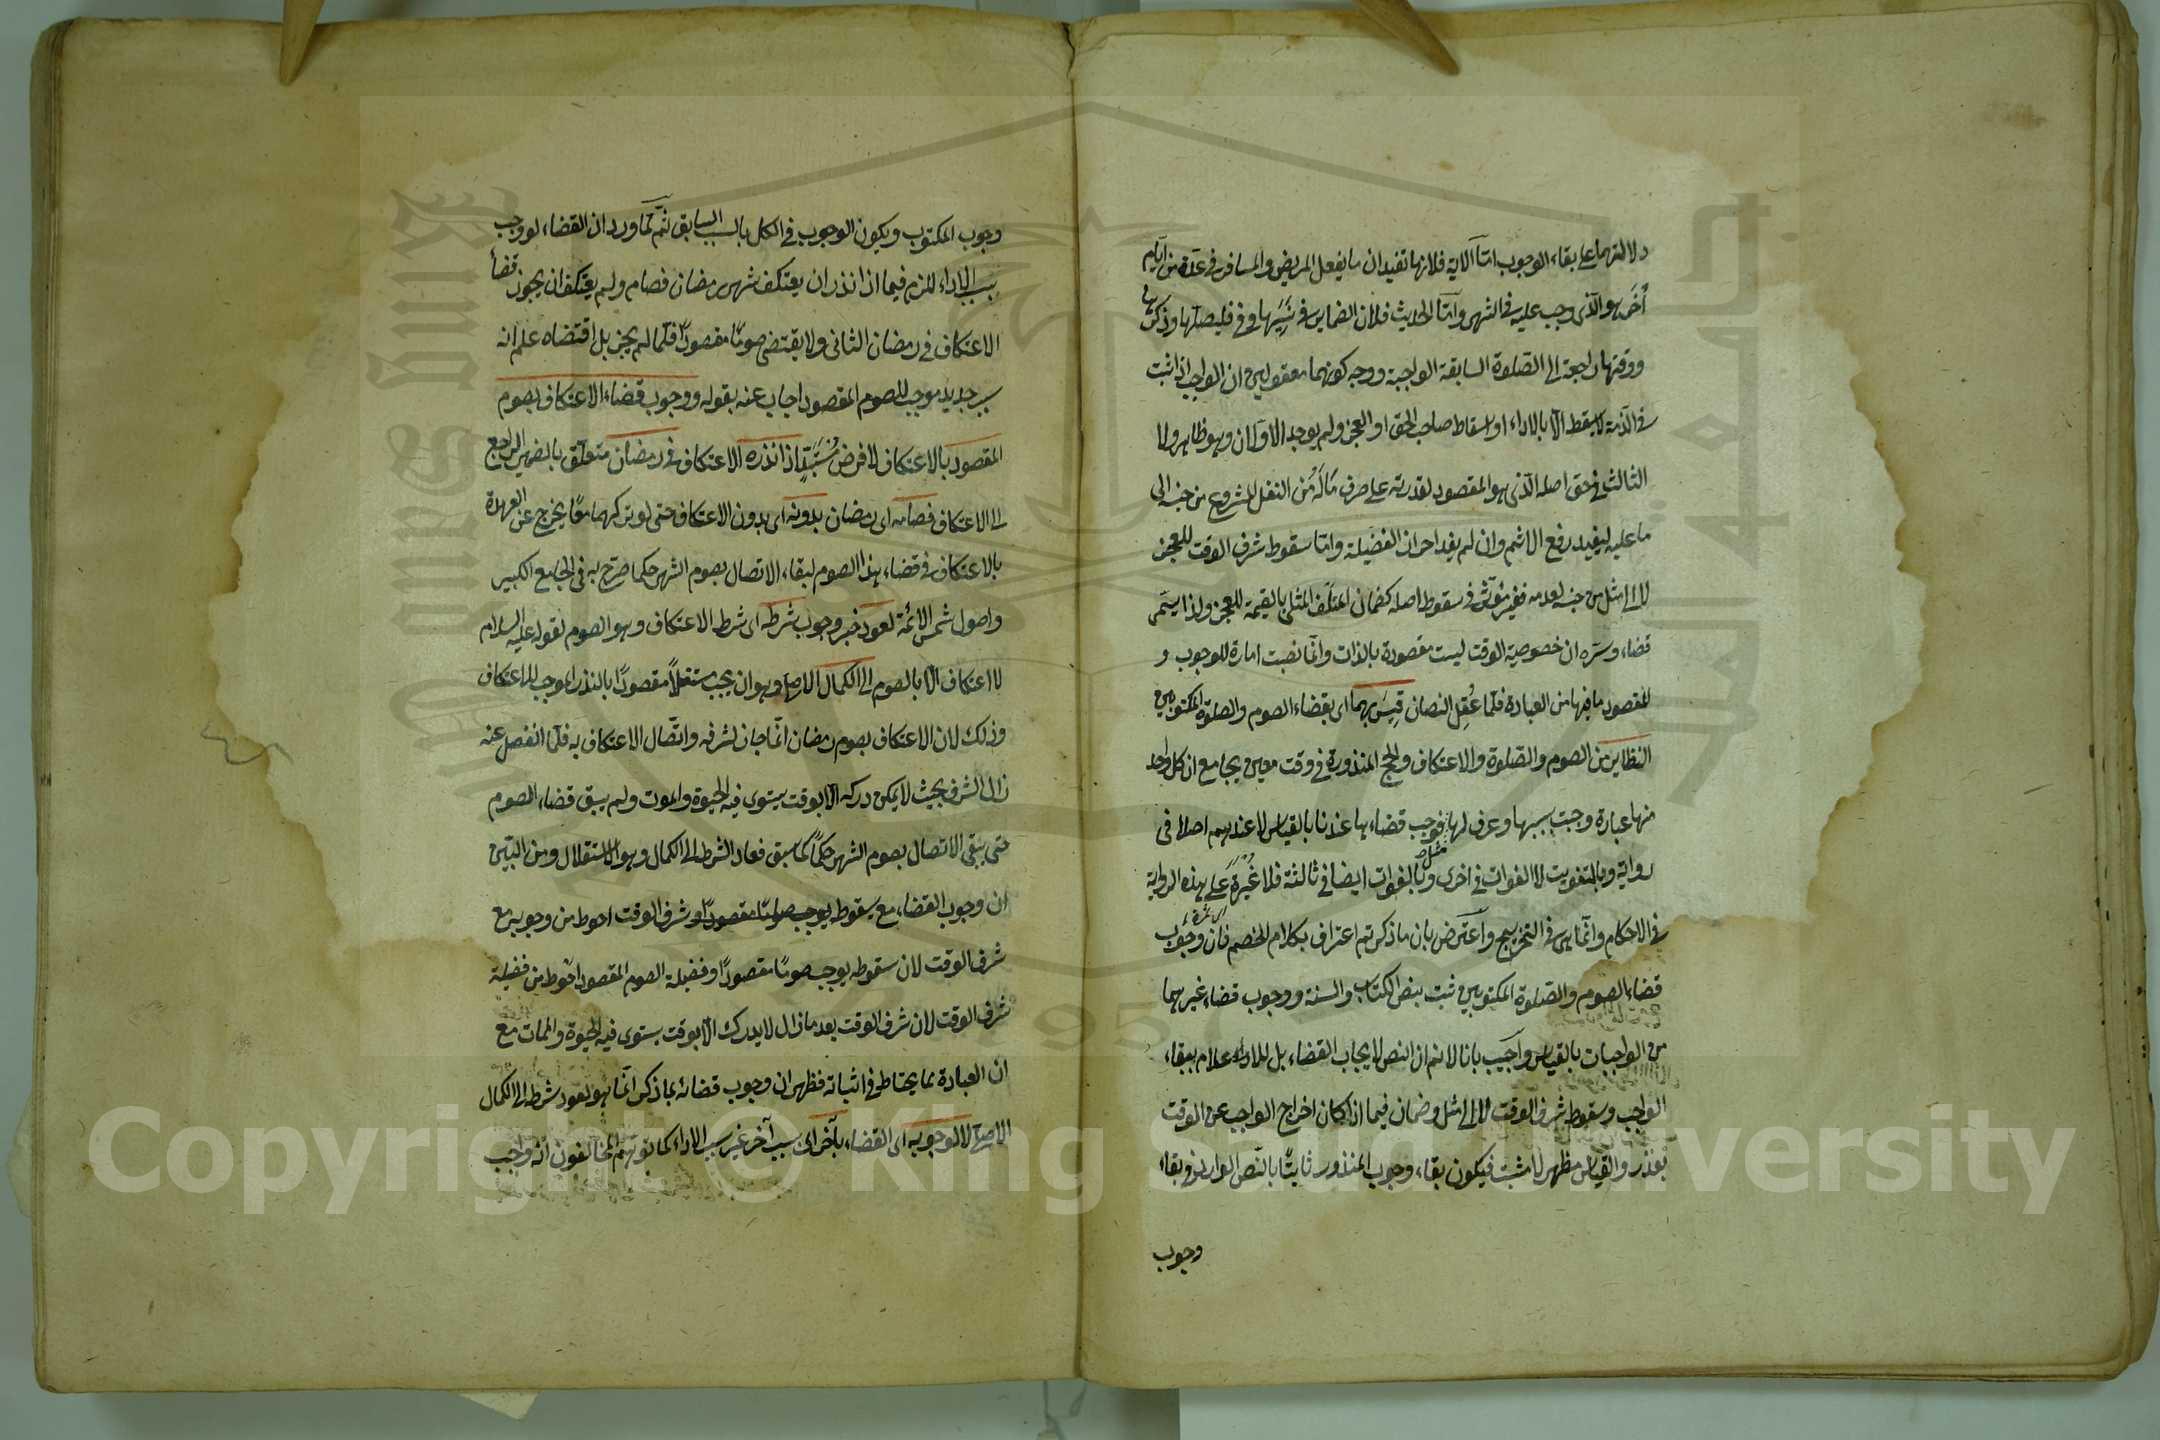 دلالتهما على بقاء الوجوب اما الآية فلانها تفيد ان ما يفعل المريض والمسافر في عدة من ايام
أخر هو الذي وجب عليه في الشهر واما الحديث فلان الضماير في نسيها وفي فليصلها وذكرها
ووقتها راجعة الى الصلوة السابقة الواجبة ووجه كونهما معقولين ان الواجب اذا ثبت
في الذمة لا يسقط الا بالاداء او باسقاط صاحب الحق او العجز ولم يوجد الاولان وهو ظاهر ولا
الثالث في حق اصله الذي هو المقصود لقدرته على صرف ماله من النفل المشروع من جنسه الى
ما عليه ليفيد رفع الاثم وان لم يفد احراز الفضيلة واما سقوط شرف الوقت للعجز
لا الى مثل من جنسه لعدمه فغير مؤثر في سقوط اصله كضمان المتلف المثلي بالقيمة للعجز ولذا يسمى
قضاء وسره ان خصوصية الوقت ليست مقصودة بالذات وانما نصبت امارة للوجوب و
المقصود ما فيها من العبادة فلما عقل النصان قيس بهما اى بقضاء الصوم والصلوة المكتوبين
النظاير من الصوم والصلوة والاعتكاف والحج المنذورة في وقت معين بجامع ان كل واحد
منها عبادة وجبت بسببها وعرف لها مثل فوجب قضاءها عندنا بالقياس لا عندهم اصلا في
رواية وبالتفويت لا الفوات في اخرى وبالفوات ايضا في ثالثة فلا ثمرة على هذه الرواية
في الاحكام وانما هي في التخريج واعترض بان ما ذكرتم اعتراف بكلام الخصم فان وجوب
قضاء الصوم والصلوة المكتوبين ثبت بنص الكتاب والسنة ووجوب قضاء غيرهما
من الواجبات بالقياس واجيب بانا لا نم ان النص لايجاب القضاء بل للاعلام ببقاء
الواجب وسقوط شرف الوقت لا الى مثل وضمان فيما اذا كان اخراج الواجب عن الوقت
بعذر والقياس مظهر لا مثبت فيكون بقاء وجوب المنذور ثابتا بالنص الوارد في بقاء
وجوب
وجوب المكتوب ويكون الوجوب في الكل بالسبب السابق ثم لما ورد ان القضاء لو وجب
بسبب الاداء للزم فيما اذا نذر ان يعتكف شهر رمضان فصام ولم يعتكف ان يجوز قضأ
الاعتكاف في رمضان الثاني ولا يقتضى صوما مقصودا فلما لم يجز بل اقتضاه علم انه
بسبب جديد موجب للصوم المقصود اجاب عنه بقوله ووجوب قضاء الاعتكاف بصوم
المقصود بالاعتكاف لا فرض اذا نذره الاعتكاف في رمضان متعلق بالضمير الراجع
الى الاعتكاف فصامه اى رمضان بدونه اى بدون الاعتكاف حتى لو تركهما معا يخرج عن العهدة
بالاعتكاف في قضاء هذا الصوم لبقاء الاتصال بصوم الشهر حكما صرح به في الجامع الكبير
واصول شمس الائمة لعود خبر وجوب شرطه اى شرط الاعتكاف وهو الصوم لقوله عليه السلام
لا اعتكاف الا بالصوم الى الكمال الاصلى وهو ان يجب مستقلا مقصودا بالنذر الموجب للاعتكاف
وذلك لان الاعتكاف بصوم رمضان انما جاز لشرفه واتصال الاعتكاف به فلما انفصل عنه
زال الشرف بحيث لا يمكن دركه الا بوقت يستوى فيه الحيوة والموت ولم يبق قضاء الصوم
حتى يبقى الاتصال بصوم الشهر حكما كما سبق فعاد الشرط الى الكمال وهو الاستقلال ومن البين
ان وجوب القضاء مع سقوط يوجب صوما مقصودا وشرف الوقت احوط من وجوبه مع
شرف الوقت لان سقوطه يوجب صوما مقصودا وفضيلة الصوم المقصود احوط من فضيلة
شرف الوقت لان شرف الوقت بعد ما زال لا يدرك الا بوقت يستوى فيه الحيوة والممات مع
ان العبادة مما يحتاط في اثباته فظهر ان وجوب قضائه بما ذكر انما هو لعود شرطه الى الكمال
الاصلى لا لوجوبه اى القضاء بآخر اى بسبب آخر غير سبب الاداء كما توهم المخالفون انه واجب